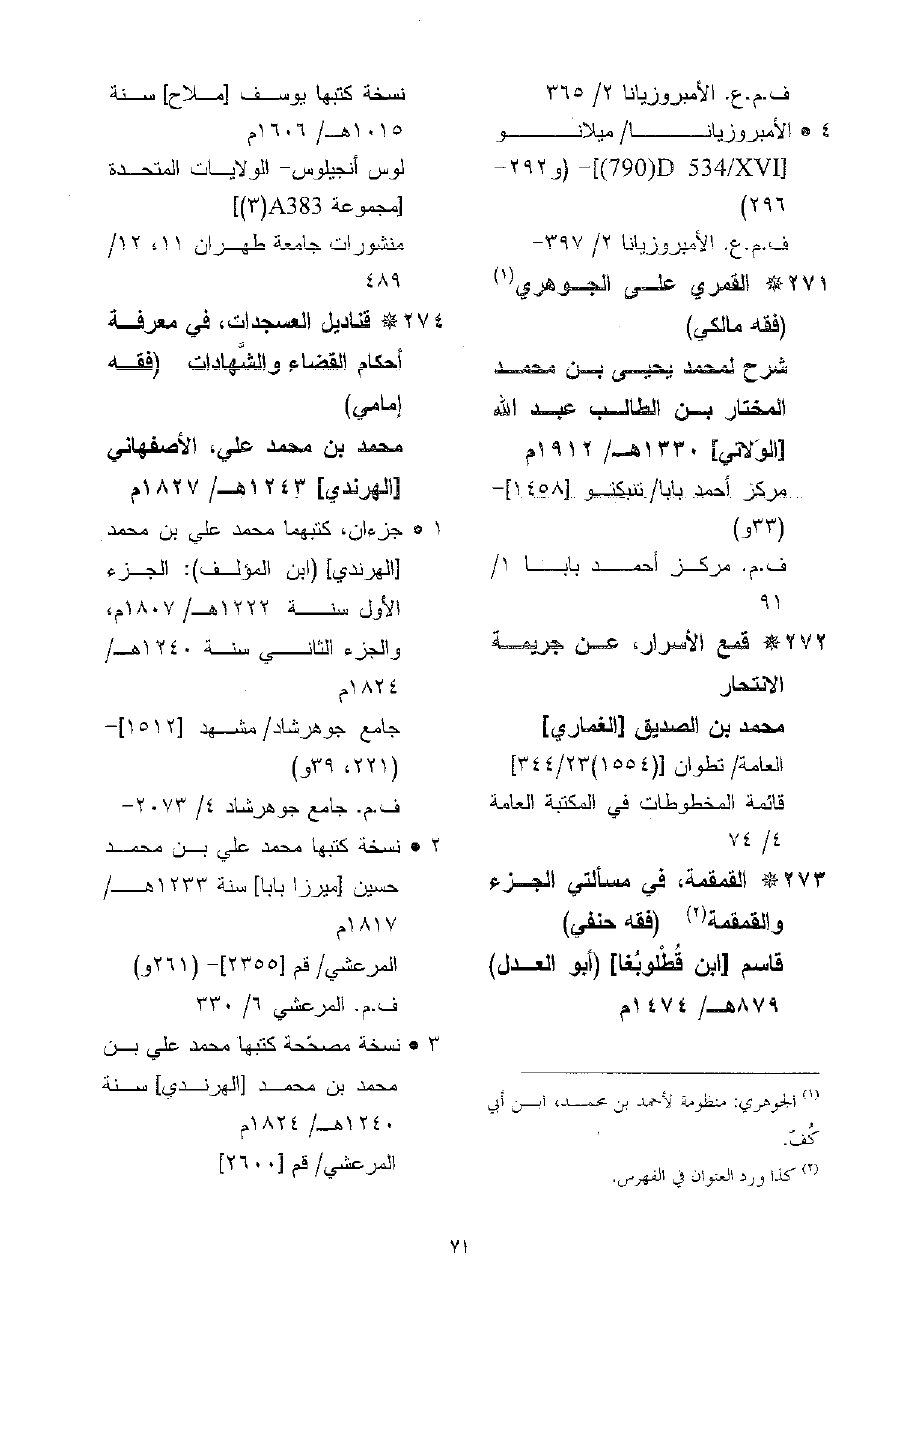 ف.م.ع. الأمبروزيانا ٢/ ٣٦٥
٤ • الأمبروزيانـــا/ ميلانـــو
[790)D 534/XVI)]- (و٢٩٢-
٢٩٦)
ف.م.ع. الأمبروزيانا ٢/ ٣٩٧-
٢٧١* القمري علـى الجـوهري(١)
(فقه مالكي)
شرح لمحمد يحيـى بـن محمـد
المختار بـن الطالـب عبـد الله
[الولاتي] ١٣٣٠هـ/ ١٩١٢م
مركز أحمد بابا/ تنبكتـو [١٤٥٨]-
(٣٣و)
ف.م. مركـز أحمـد بابـا ١/
٩١
٢٧٢* قمع الأسرار، عـن جريمـة
الانتحار
محمد بن الصديق [الغماري]
العامة/ تطوان [(١٥٥٤)٣٤٤/٢٣]
قائمة المخطوطات في المكتبة العامة
٤/ ٧٤
٢٧٣* القمقمة، في مسألتي الجـزء
والقمقمة(٢) (فقه حنفي)
قاسم [ابن قُطْلوبُغا] (أبو العـدل)
٨٧٩هـ/ ١٤٧٤م
(١) الجوهري: منظومة لأحمد بن محمـد، ابـن أبي
كُفّ.
(٢) كذا ورد العنوان في الفهرس.
نسخة كتبها يوسـف [مـلاح] سـنة
١٠١٥هـ/ ١٦٠٦م
لوس أنجيلوس- الولايـات المتحـدة
[مجموعة A383(٣)]
منشورات جامعة طهـران ١١، ١٢/
٤٨٩
٢٧٤* قناديل العسجدات، في معرفـة
أحكام القضاء والشَّهادات (فقـه
إمامي)
محمد بن محمد علي، الأصفهاني
[الهرندي] ١٢٤٣هـ/ ١٨٢٧م
١ • جزءان، كتبهما محمد علي بن محمد
[الهرندي] (ابن المؤلـف): الجـزء
الأول سنـة ١٢٢٢هـ/ ١٨٠٧م،
والجزء الثانـي سنـة ١٢٤٠هـ/
١٨٢٤م
جامع جوهرشاد/ مشـهد [١٥١٢]-
(٢٢١، ٣٩و)
ف.م. جامع جوهرشاد ٤/ ٢٠٧٣-
٢ • نسخة كتبها محمد علي بـن محمـد
حسين [ميرزا بابا] سنة ١٢٣٣هـ/
١٨١٧م
المرعشي/ قم [٢٣٥٥]- (٢٦١و)
ف.م. المرعشي ٦/ ٣٣٠
٣ • نسخة مصحّحة كتبها محمد علي بـن
محمد بن محمـد [الهرنـدي] سـنة
١٢٤٠هـ/ ١٨٢٤م
المرعشي/ قم [٢٦٠٠]
٧١